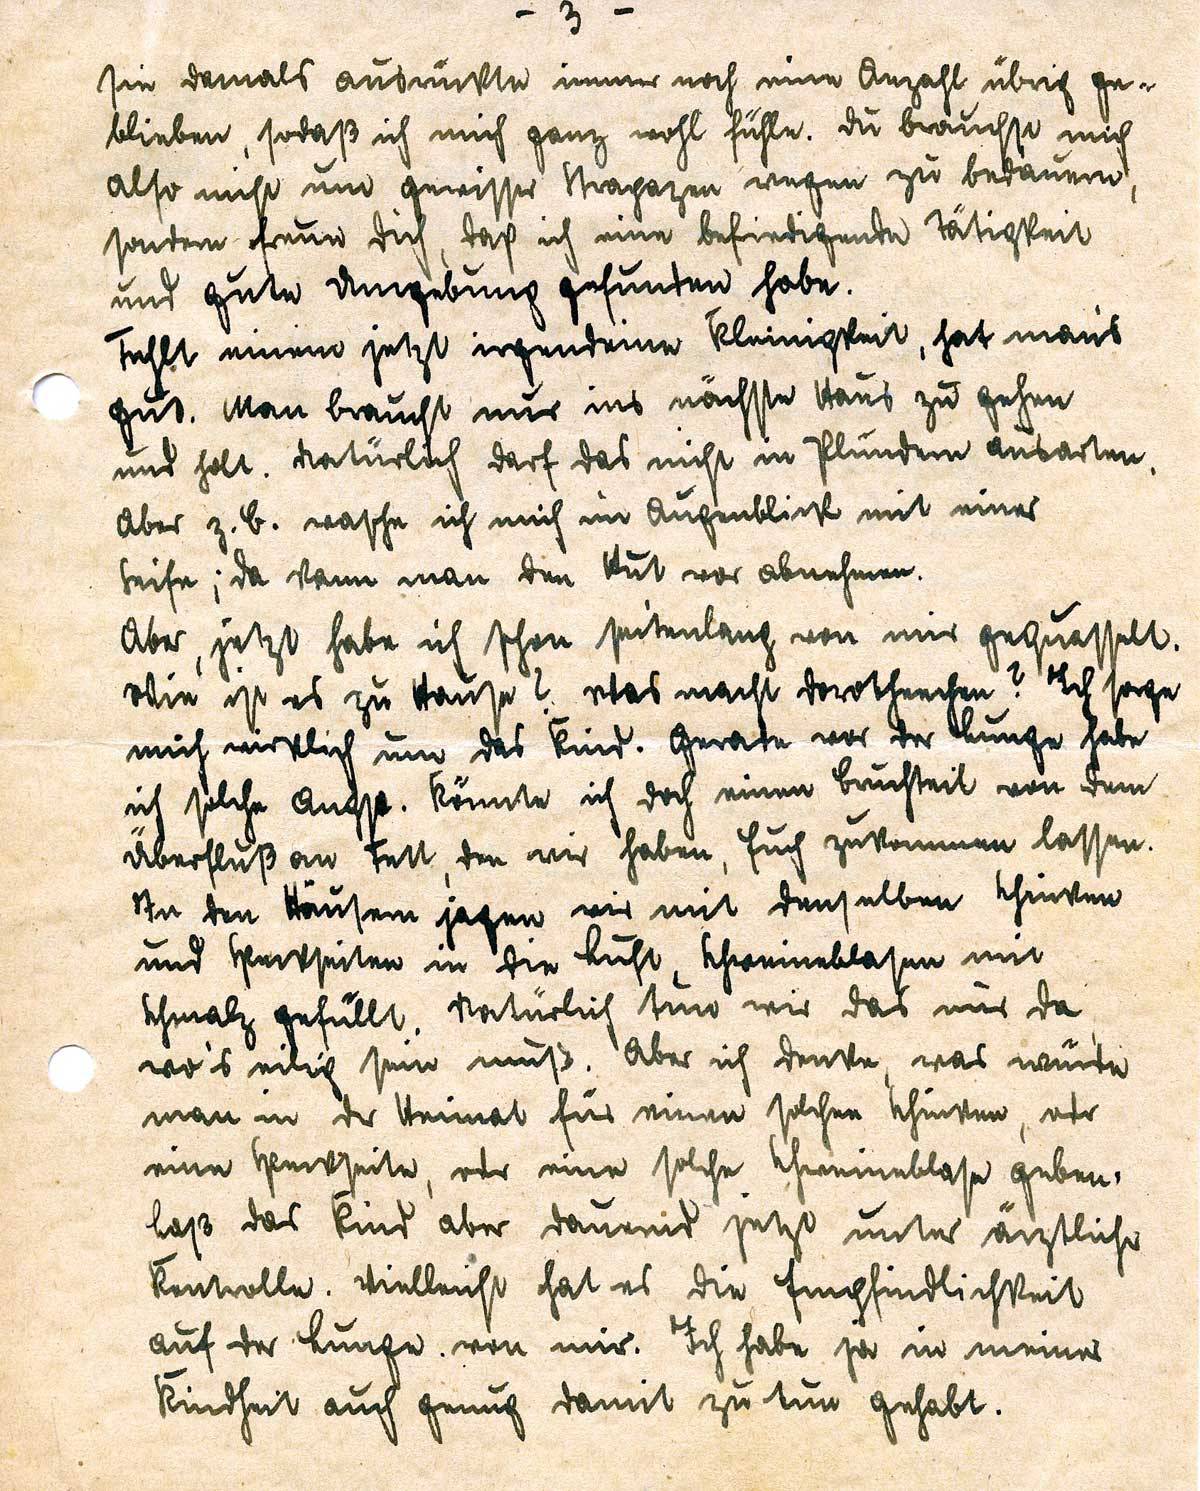 - 3 -
sie damals ausrückte immer noch eine Anzahl übrig ge-
blieben, sodaß ich mich ganz wohl fühle. Du brauchst mich
also nicht um gewisser Strapazen wegen zu bedauern,
sondern freue Dich, daß ich eine befriedigende Tätigkeit
und gute Umgebung gefunden habe.
Fehlt einem jetzt irgendeine Kleinigkeit, hat man's
gut. Man braucht nur ins nächste Haus zu gehen
und holt. Natürlich darf das nicht in Plündern ausarten.
Aber z. B. wasche ich mich im Augenblick mit einer
Seife; da kann man den Hut vor abnehmen.
Aber, jetzt habe ich schon seitenlang von mir gequasselt.
Wie ist es zu Hause? Was macht Dorotheechen? Ich sorge
mich wirklich um das Kind. Gerade vor der Lunge habe
ich solche Angst. Könnte ich doch einen Bruchteil von dem
Überfluß an Fett, den wir haben, Euch zukommen lassen.
In den Häusern jagen wir mit denselben Schinken
und Speckseiten in die Luft, Schweineblasen mit
Schmalz gefüllt. Natürlich tun wir das nur da,
wo's eilig sein muß. Aber ich denke, was würde
man in der Heimat für einen solchen Schinken, oder
eine Speckseite, oder eine solche Schweineblase geben.
Laß das Kind aber dauernd jetzt unter ärztlicher
Kontrolle. Vielleicht hat es die Empfindlichkeit
auf der Lunge von mir. Ich habe ja in meiner
Kindheit auch genug damit zu tun gehabt.